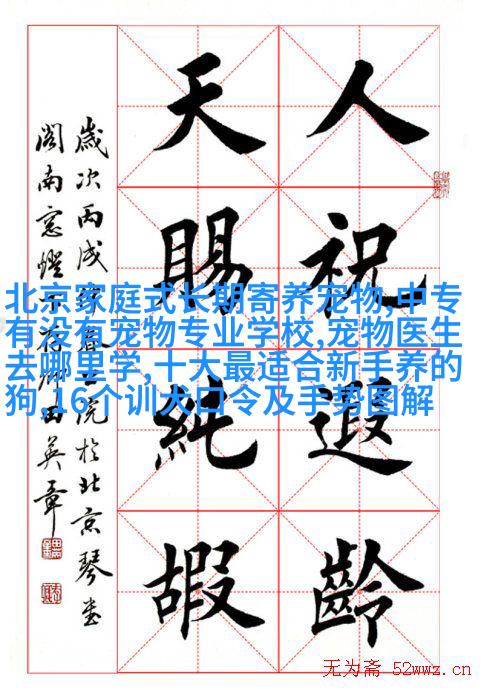 人祝遐齡
天賜純嘏
歲次丙戌春上浣於北京琴書
閣南窓燈下存卿田英章
北京家庭式长期寄养宠物,中专
有没有宠物专业学校,宠物医生
去哪里学,十大最适合新手养的
狗,16个训犬口令及手势图解
无为斋 52wwz.cn